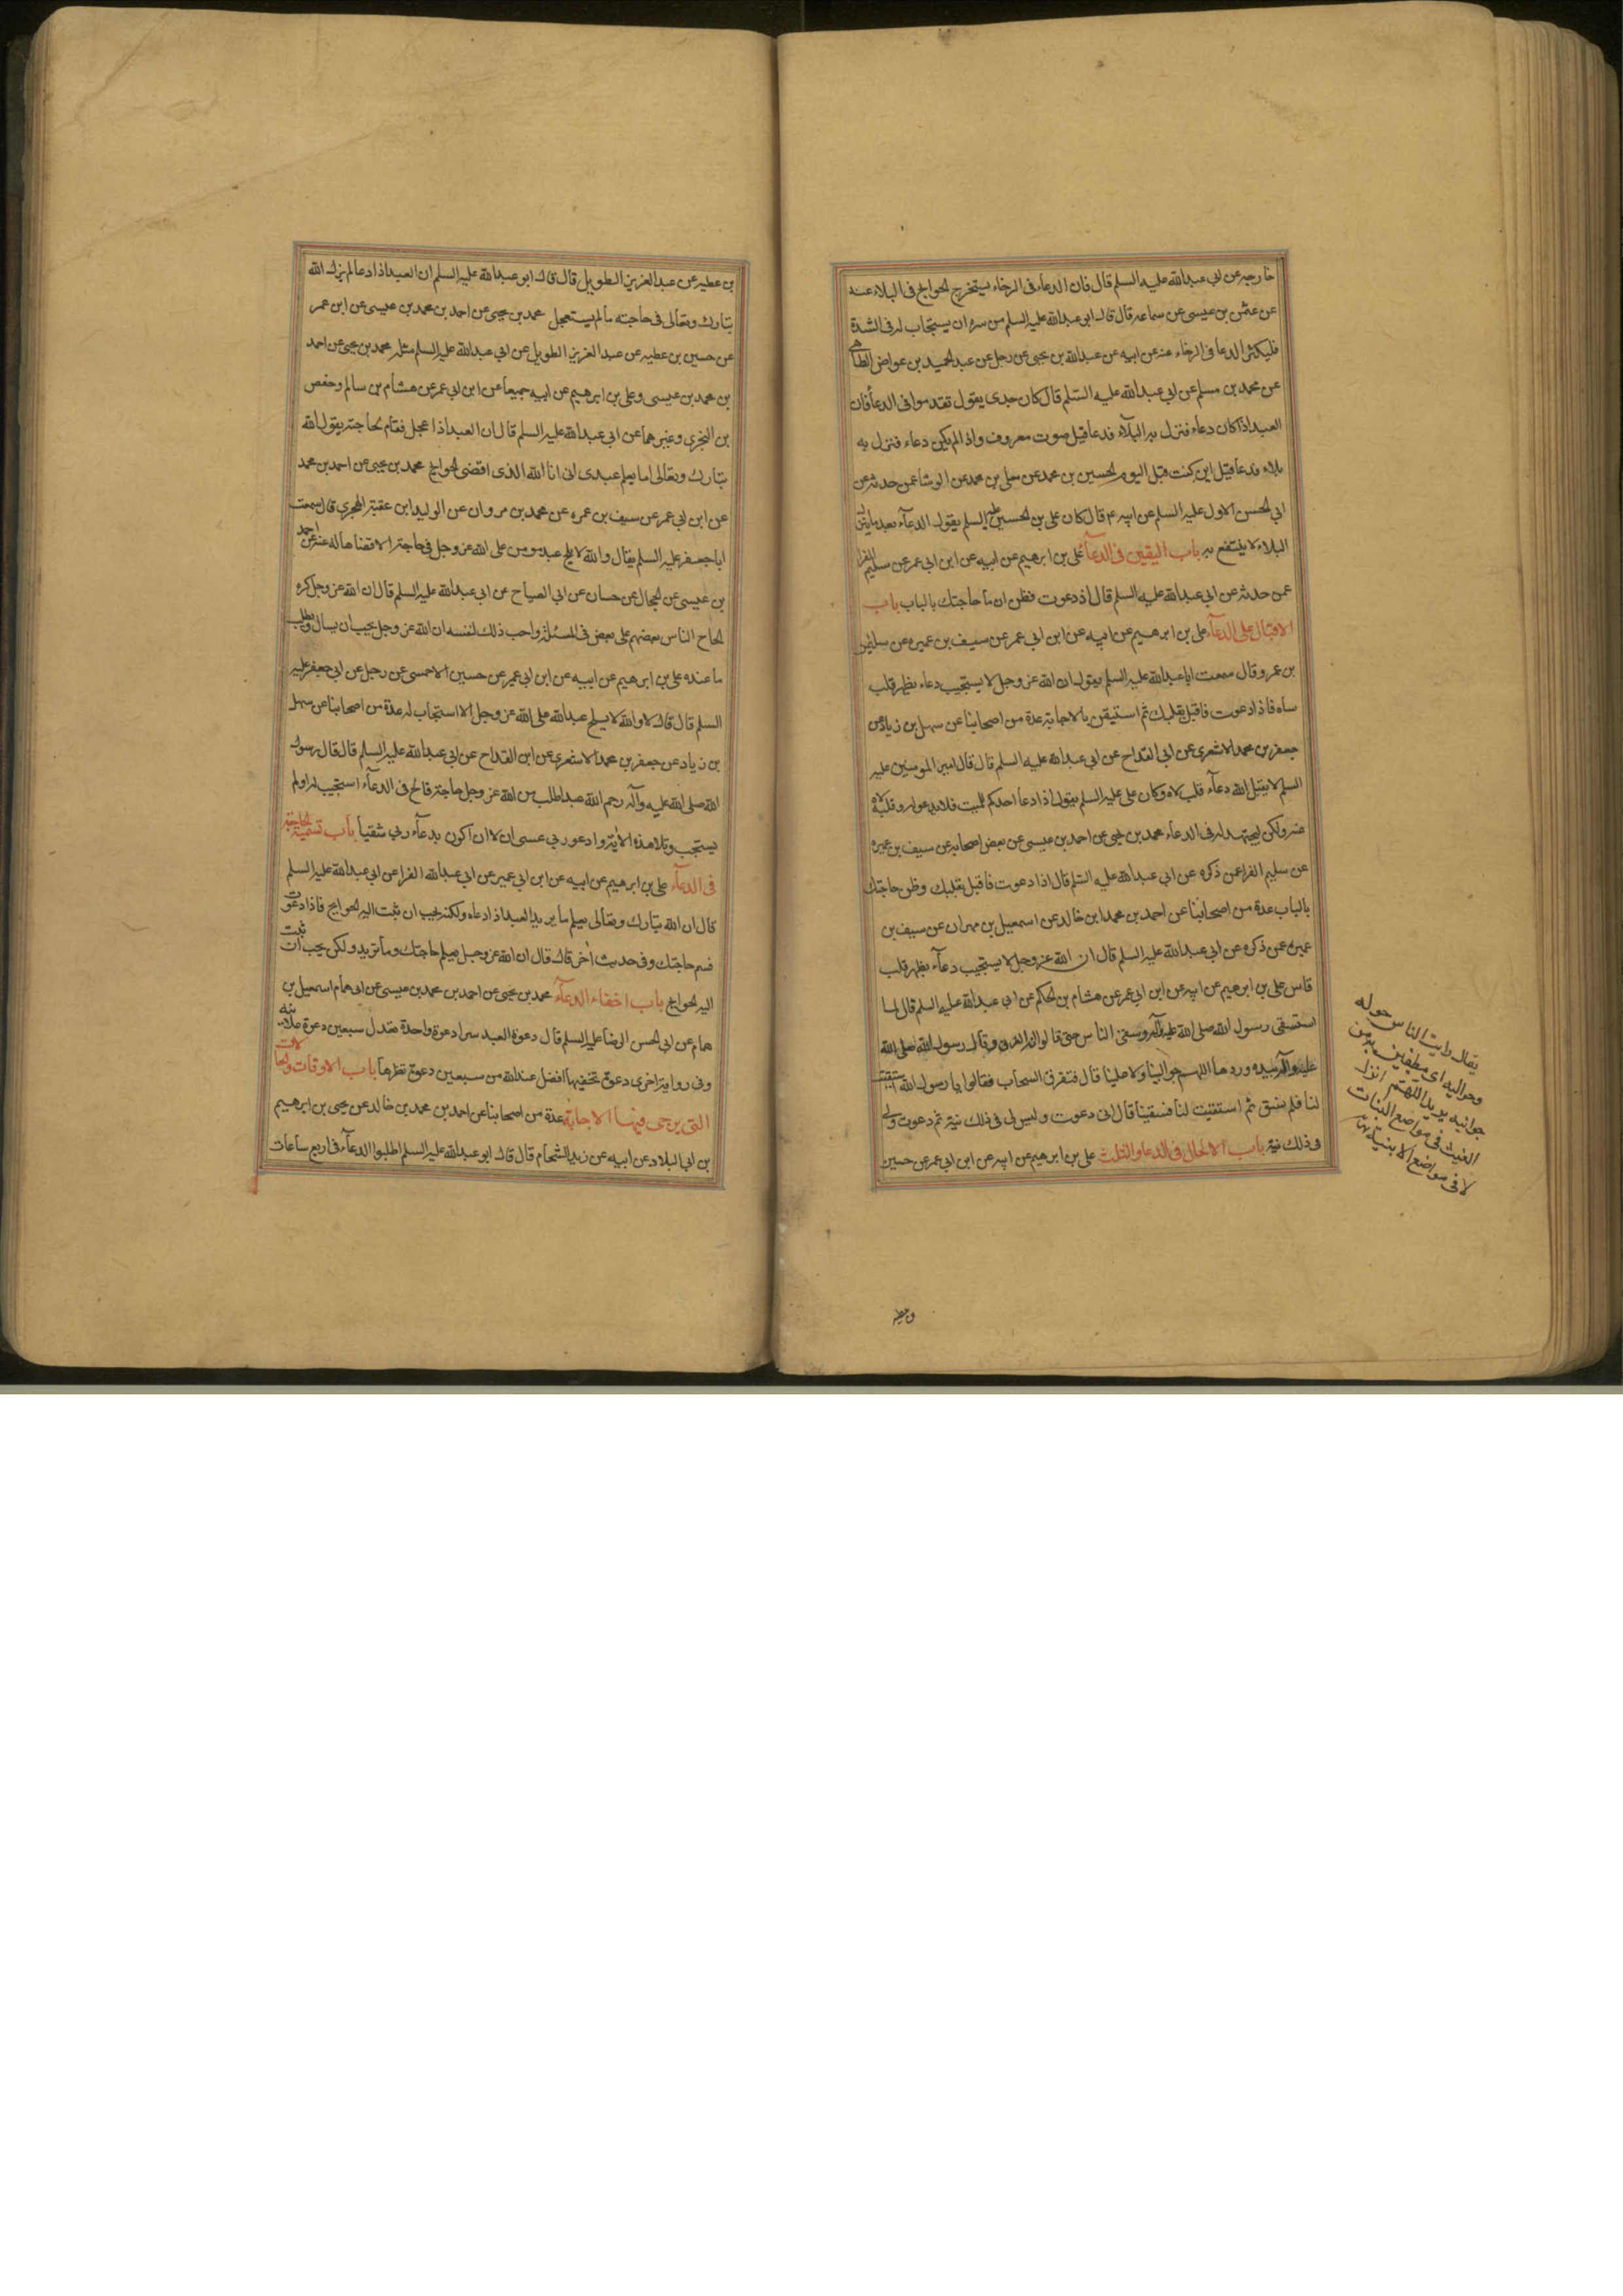 خارجه عن ابي عبدالله عليه السلم قال فان الدعاء فى الرخاء يستخرج الحوائج فى البلاء عنه
عن عثمن بن عيسى عن سماعه قال قال ابى عبدالله عليه السلم من سره ان يستجاب له فى الشدة
فليكثر الدعا فى الرخاء عنه عن ابيه عن عبدالله بن يحيى عن رجل عن عبدالحميد بن عواض الطاى
عن محمد بن مسلم عن ابي عبدالله عليه السلم قال كان جدى يقول تقدموا فى الدعأ فان
العبد اذا كان دعاء فنزل به البلآء فدعا قيل صوت معروف واذا لم يكن دعاء فنزل به
بلاء فدعا قيل اين كنت قبل اليوم الحسين بن محمد عن معلى بن محمد عن الوشا عمن حدثه عن
ابي الحسن الاول عليه السلم عن ابيه ع قال كان على بن الحسين عليه السلم يقول الدعآء بعد ما ينزل
البلاء لا ينتفع به باب اليقين فى الدعآء على بن ابرهيم عن ابيه عن ابن ابى عمر عن سليم الفرا
عمن حدثه عن ابى عبدالله عليه السلم قال اذ دعوت فظن ان ما حاجتك بالباب باب
الاقبال على الدعآء على بن ابرهيم عن ابيه عن ابن ابى عمر عن سيف بن عميره عن سليمن
بن عمر وقال سمعت ابا عبدالله عليه السلم يقول ان الله عز وجل لا يستجيب دعاء بظهر قلب
ساه فاذا دعوت فاقبل بقلبك ثم استيقن بالاجابة عدة من اصحابنا عن سهل بن زياد عن
جعفر بن محمد الاشعرى عن ابى القداح عن ابى عبدالله عليه السلم قال قال امير المومنين عليه
السلم لا يقبل الله دعآء قلب لاه وكان على عليه السلم يقول اذا دعا احدكم للميت فلا يدعو له وقلبه لاه
عنه ولكن ليجتهد له فى الدعاء محمد بن يحيى عن احمد بن عيسى عن بعض اصحابه عن سيف بن عميره
عن سليم الفرا عمن ذكره عن ابى عبدالله عليه السلم قال اذا دعوت فأقبل بقلبك وظن حاجتك
بالباب عدة من اصحابنا عن احمد بن محمد ابن خالد عن اسمعيل بن مهران عن سيف بن
عميره عمن ذكره عن ابي عبدالله عليه السلم قال ان الله عز وجل لا يستجيب دعآء بظهر قلب
قاس على بن ابرهيم عن ابيه عن ابن ابي عمر عن هشام بن الحكم عن ابى عبدالله عليه السلم قال لما
استسقى رسول الله صلى الله عليه وآله وسقى الناس حتى قالوا انه الغرق وقال رسول الله صلى الله
عليه وآله بيده وردها اللهم حوالينا ولا علينا قال فتفرق السحاب فقالوا يا رسول الله استقيت
لنا فلم نسق ثم استقيت لنا فسقينا قال انى دعوت وليس لى فى ذلك نية ثم دعوت ولى
فى ذلك نية باب الالحاح فى الدعا والتلبث على بن ابرهيم عن ابيه عن ابن ابي عمر عن حسين
يقال رايت الناس حوله
وحواليه اى مطيفين به من
جوانبه يريد اللهم انزل
الغيث فى مواضع النبات
لا فى مواضع الابنية نهاية
بن عطيه
بن عطيه عن عبدالعزيز الطويل قال قال ابو عبدالله عليه السلم ان العبد اذا دعا لم يزل الله
تبارك وتعالى فى حاجته ما لم يستعجل محمد بن يحيى عن احمد بن محمد بن عيسى عن ابن عمر
عن حسين بن عطيه عن عبدالعزيز الطويل عن ابى عبدالله عليه السلم مثله محمد بن يحيى عن احمد
بن محمد بن عيسى وعلى بن ابرهيم عن ابيه جميعا عن ابن ابي عمر عن هشام بن سالم وحفص
بن البخترى وغيرهما عن ابى عبدالله عليه السلم قال ان العبد اذا عجل فقام لحاجته يقول الله
تبارك وتعالى اما يعلم عبدى انى انا الله الذى اقضى الحوايج محمد بن يحيى عن احمد بن محمد
عن ابن ابي عمر عن سيف بن عمره عن محمد بن مروان عن الوليد ابن عقبة الهجرى قال سمعت
ابا جعفر عليه السلم يقال والله لا يلح عبد مومن على الله عز وجل فى حاجته الا قضاها له عنه عن احمد
بن عيسى عن الحجال عن حسان عن ابي الصباح عن ابى عبدالله عليه السلم قال ان الله عز وجل كره
الحاح الناس بعضهم على بعض فى المسئلة واحب ذلك لنفسه ان الله عز وجل يحب ان يسال ويطلب
ما عنده على بن ابرهيم عن ابيه عن ابن ابى عمير عن حسين الاحمسى عن رجل عن ابى جعفر عليه
السلم قال قال لا والله لا يلح عبدالله على الله عز وجل الا استجاب له عدة من اصحابنا عن سهل
بن زياد عن جعفر بن محمد الاشعرى عن ابن القداح عن ابى عبدالله عليه السلم قال قال رسول
الله صلى الله عليه وآله رحم الله عبدا طلب من الله عز وجل حاجته فالح فى الدعآء استجيب له او لم
يستجب وتلا هذه الآية وادعو ربى عسى ان لا ان اكون بدعآء ربي شقياً باب تسمية الحاجة
فى الدعآء على بن ابرهيم عن ابيه عن ابن ابى عمير عن ابى عبدالله الفرا عن ابى عبدالله عليه السلم
قال ان الله تبارك وتعالى يعلم ما يريد العبد اذا دعاه ولكنه يحب ان تبث اليه الحوايج فاذا دعوت
فسم حاجتك وفى حديث اخر قال قال ان الله عز وجل يعلم حاجتك وما تريد ولكن يحب ان تبث
اليه الحوايج باب اخفاء الدعآء محمد بن يحيى عن احمد بن محمد بن عيسى عن ابى همام اسمعيل بن
همام عن ابى الحسن الرضا عليه السلم قال دعوة العبد سرا دعوة واحدة تعدل سبعين دعوة علانية
وفى رواية اخرى دعوة تخفيها افضل عند الله من سبعين دعوة تظهرها باب الاوقات والحالات
التى يرجى فيها الاجابة عدة من اصحابنا عن احمد بن محمد بن خالد عن يحيى بن ابرهيم
بن ابى البلاد عن ابيه عن زيد الشحام قال قال ابو عبدالله عليه السلم اطلبوا الدعآء فى اربع ساعات